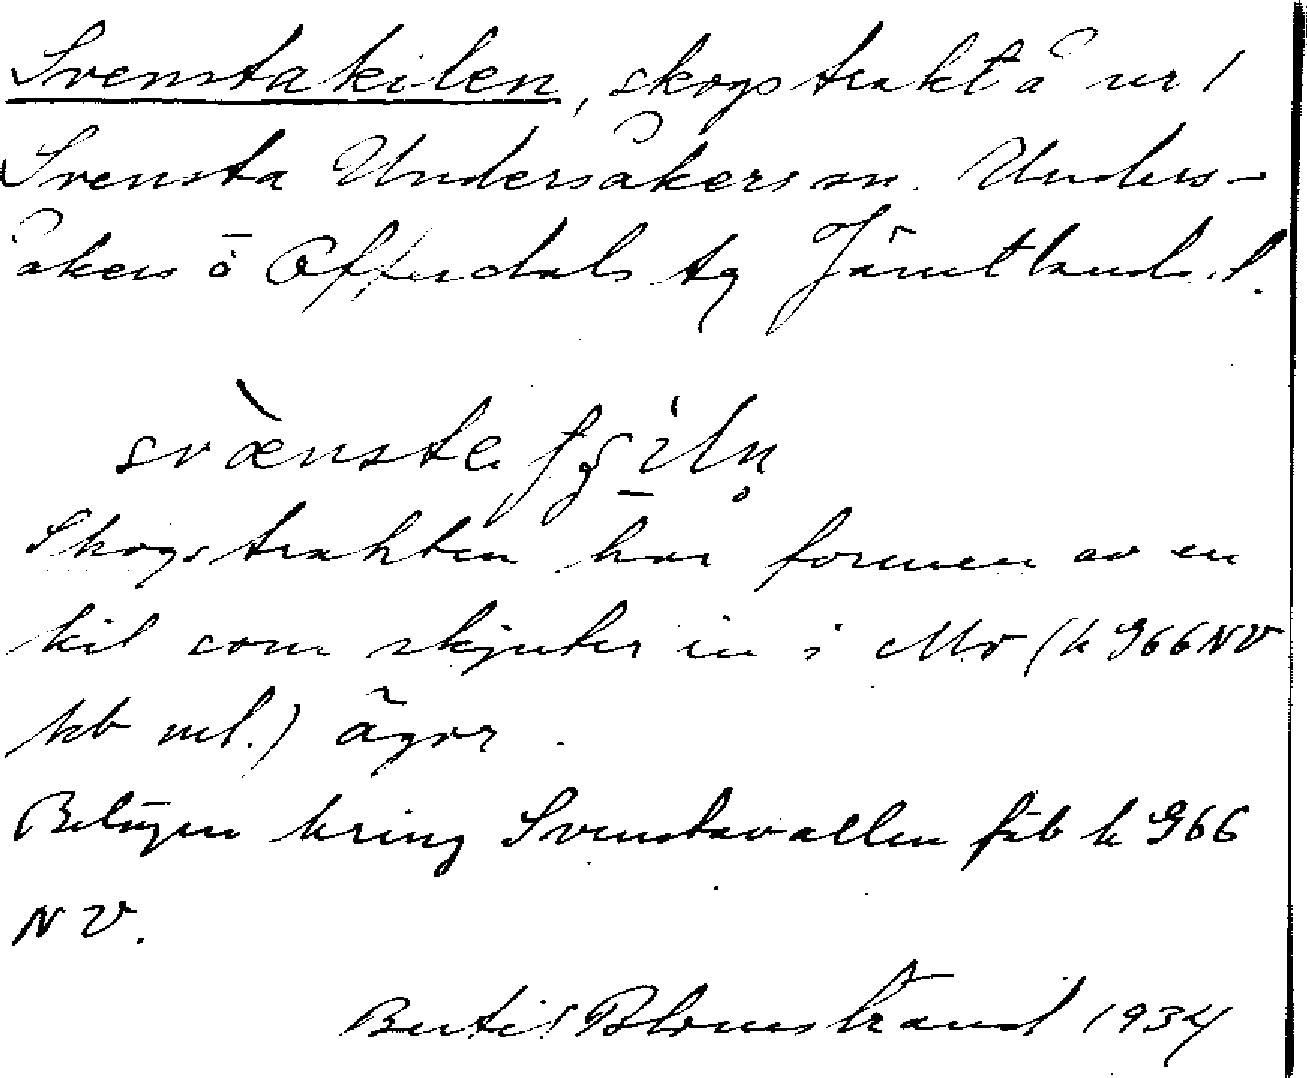 Svenstakilen, skogstrakt å nr 1
Svensta Undersåkers sn. Unders-
åkers o Offerdals tg Jämtlands l.
svænste
Skogstrakten har formen av en
kil som skjuter in i Mo (k 966 NV
kb ml.) ägor.
Belägen kring Svenstavallen fäb k 966
NV.
Bertil Blomstrand 1934